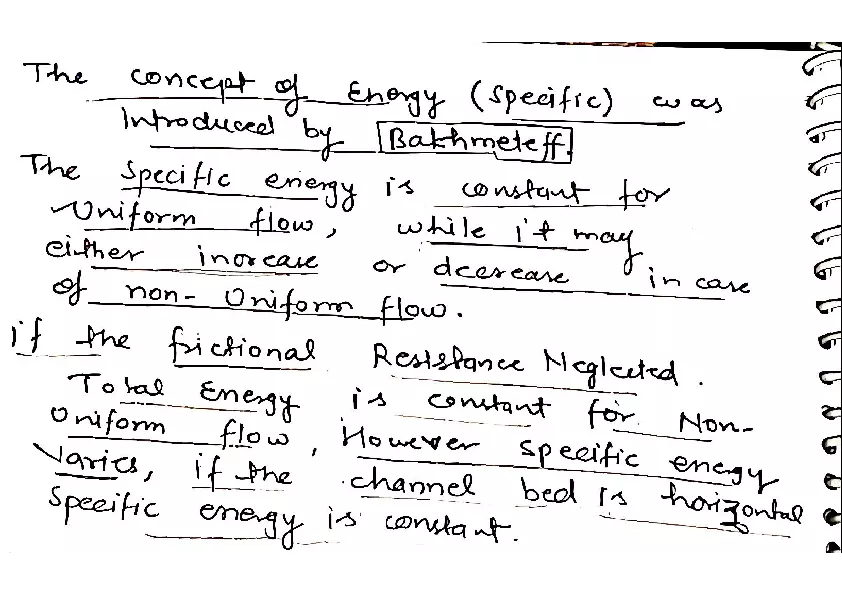 The concept of Energy (Specific) was
Introduced by Bakhmeteff.
The Specific energy is constant for
Uniform flow, while it may
either increase or decrease in case
of non-Uniform flow.
if the frictional Resistance Neglected.
Total Energy is constant for Non-
Uniform flow, However specific energy
Varies, if the channel bed is horizontal
Specific energy is constant.